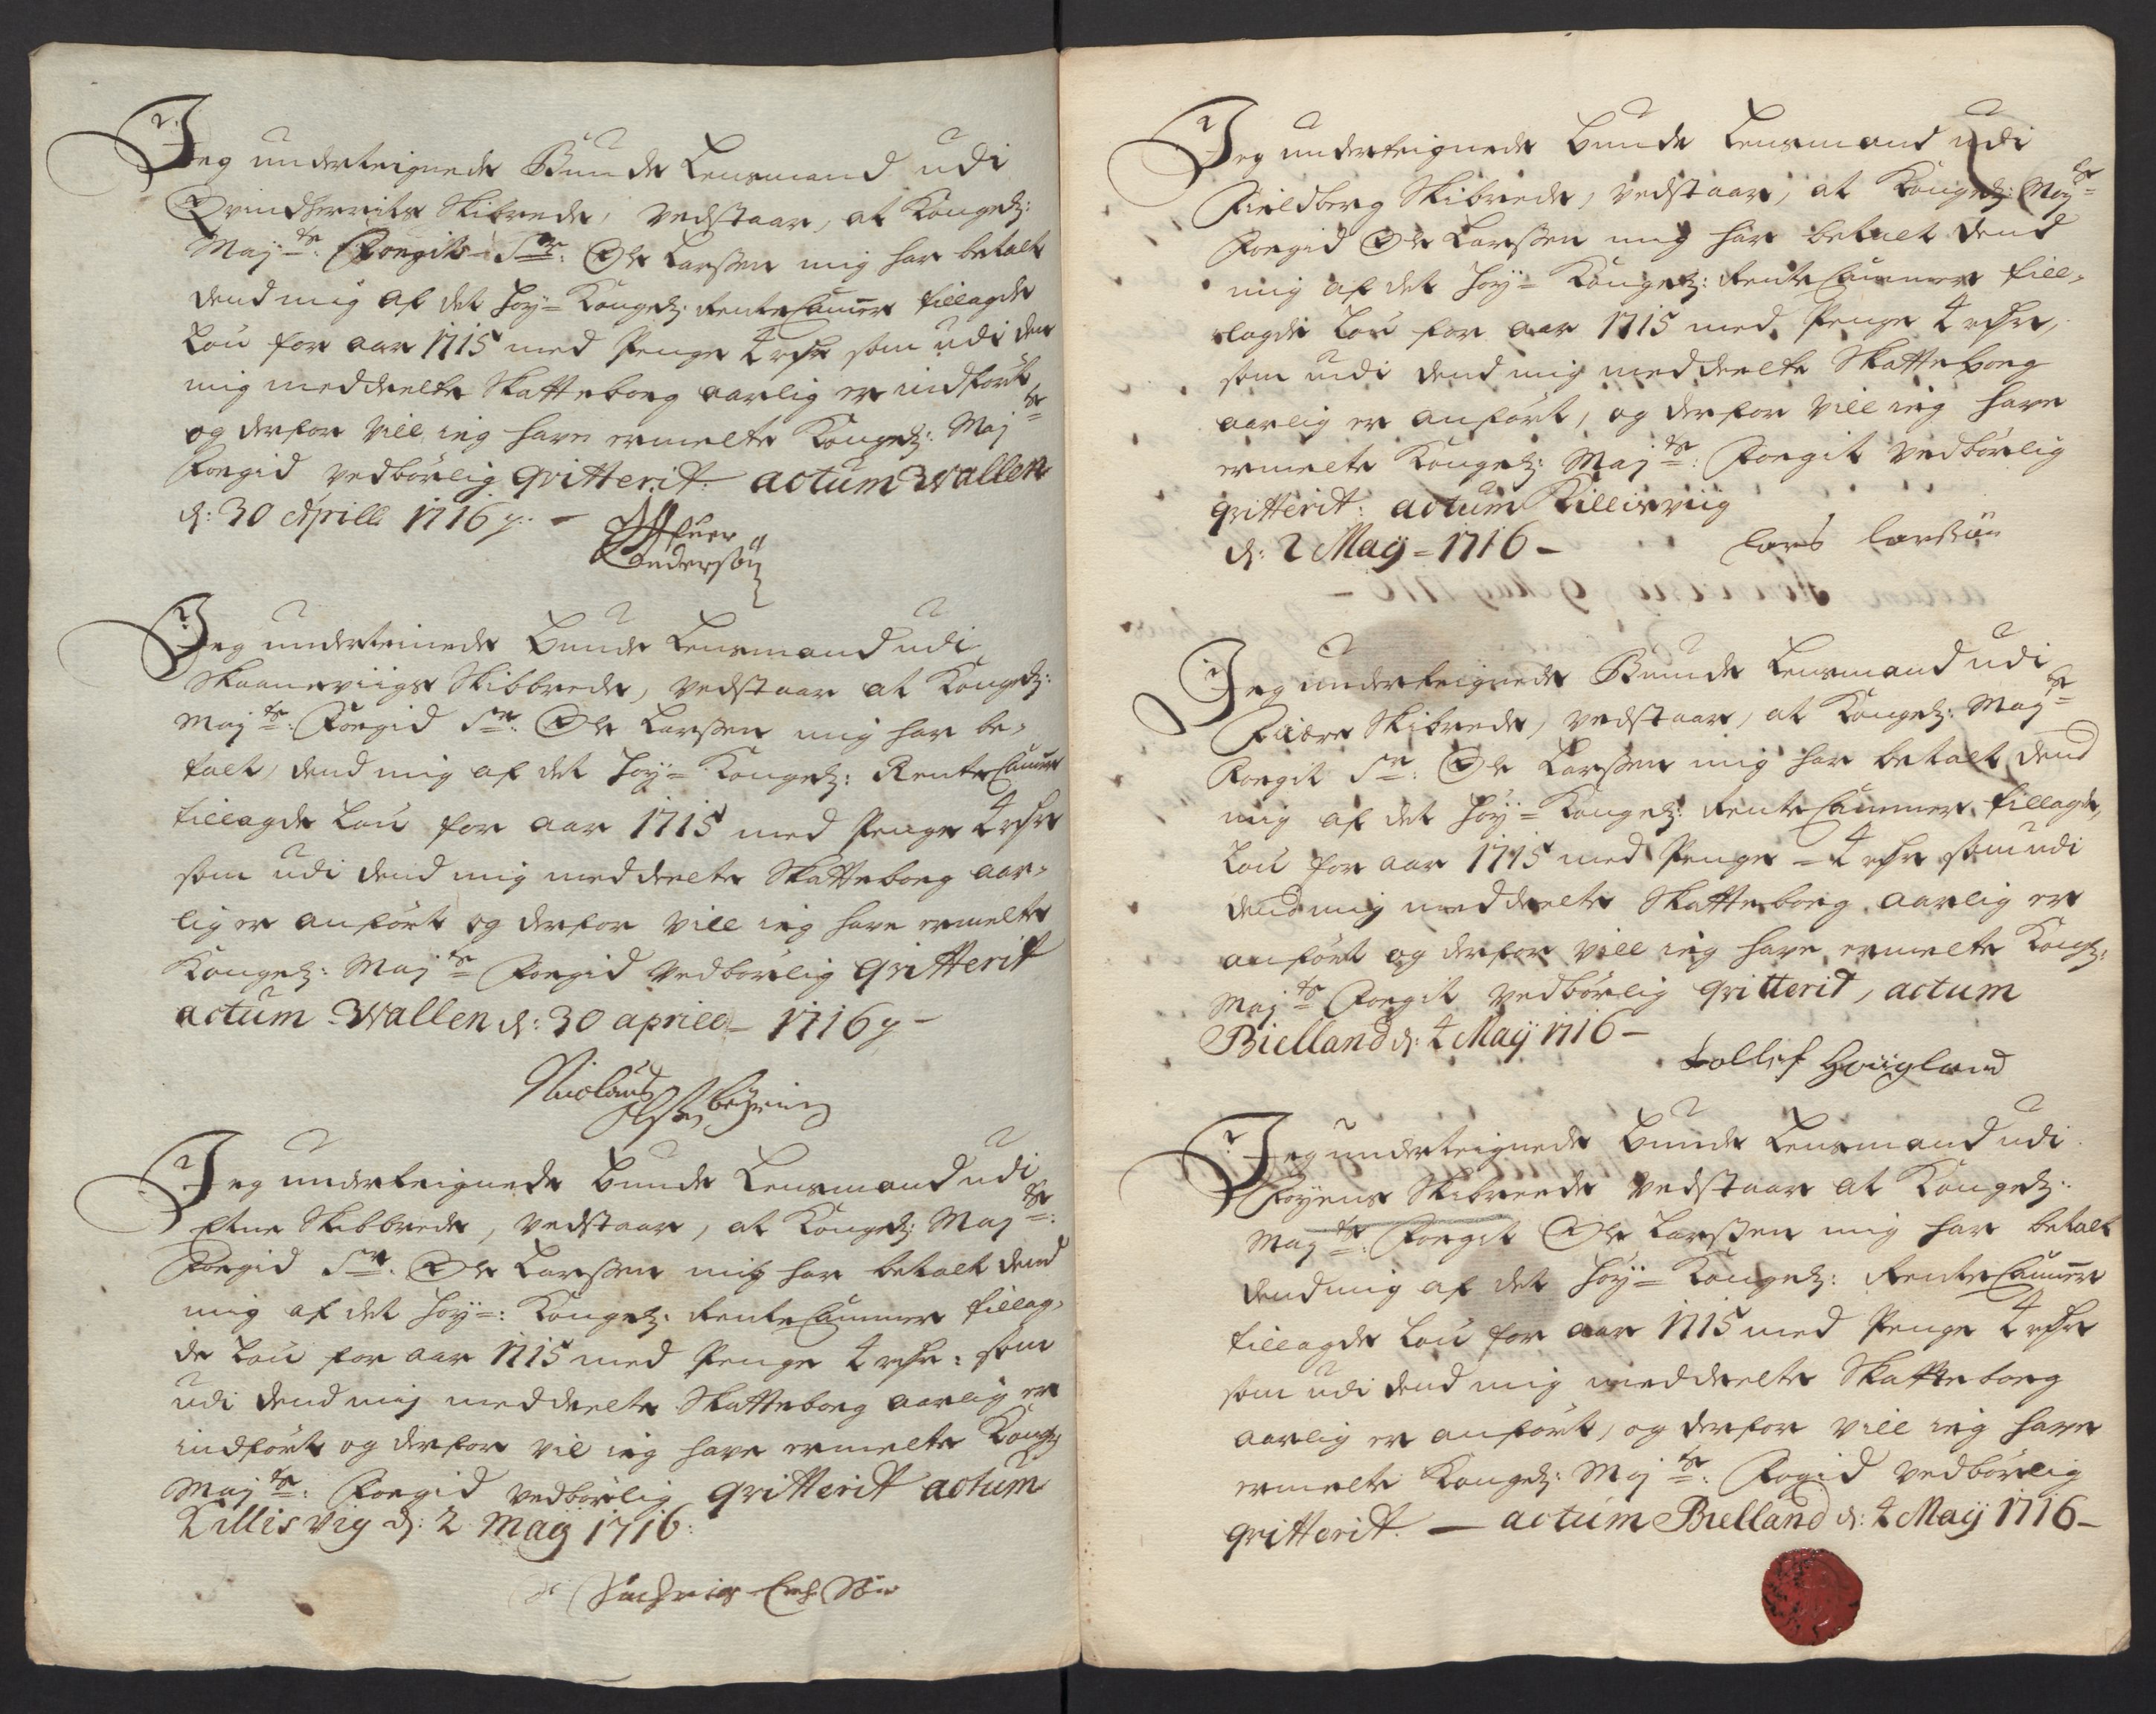 Jeg underteignede Bunde Lensmand udi
Qvindherrits Skibrede, vedstaar, at Kongel:
Majts: Foegit Sr: Ole Larssen mig har betalt
dend mig af det høy= Kongel: RenteCamer tillagde
Løn for aar 1715 med Penge 4 rdr som udi den
mig meddeelte Skattebog aarlig er indført
og derfor vill ieg have ermelte Kongel: Majts
Foegid vedbørlig qvitterit. actum Wallen
d: 30 Aprili 1716
Anderssøn
Jeg underteinede Bunde Lensmand udi
Skaaneviigs Skibbrede, vedstaar at Kongel:
Majts: Foegid Sr: Ole Larssen mig har be=
talt, dend mig af det høy= Kongel: RenteCamer
tillagde Løn for aar 1715 med Penge 4 rdr
som udi dend mig meddeelte Skattebog aar=
lig er anført og derfor vill ieg have ermelte
Kongel: Majts Foegid vedbørlig qvitterit
actum Wallen d: 30 aprili 1716
Nicolaus
Jeg underteignede Bunde Lensmand udi
Etne Skibbrede, vedstaar, at Kongel: Majts:
Foegid Sr. Ole Larssen mig har betalt dend
mig af det høy=: Kongel: RenteCammer tillag=
de Løn for aar 1715 med Penge 4 rdr: som
udi dend mig meddeelte Skattebog aarlig er
indført og derfor vil ieg have ermelte Kongl
Majts: Foegid vedbørlig qvitterit actum
Killisvig d: 2 Maij 1716:
Jeg underteignede Bunde Lensmand udi
Fieldberg Skibrede, vedstaar, at Kongel: Majts
Foegid Ole Larssen mig har betalt dend
mig af det høy= Kongel: RenteCammer till=
lagde Løn for aar 1715 med Penge 4 rdr,
som udi dend mig meddeelte Skattebog
aarlig er anført, og derfor vill ieg have
ermelte Kongel: Majts: Foegit vedbørlig
qvitterit: actum Killisviig
d: 2 Maij = 1716 –
Lars Larssøn
Jeg underteignede Bunde Lensmand udi
Fiære Skibrede, vedstaar, at Kongel: Majts
Foegit Sr: Ole Larssen mig har betalt dend
mig af det høy= Kongel: RenteCammer tillagde,
Løn for aar 1715 med Penge – 4 rdr som udi
dend mig meddeelte Skattebog aarlig er
anført og derfor vill ieg have ermelte Kongl:
Majts Foegit vedbørlig qvitterit, actum
Bielland d: 4 Maij 1716 –
Tollef Hougland
Jeg underteignede Bunde Lensmand udi
Føyens Skibreede vedstaar at Kongel:
Majts: Foegit Ole Larssen mig har betalt
dend mig af det høy= Kongel: RenteCamer
tillagde Løn for aar 1715 med Penge 4 rdr
som udi dend mig meddeelte Skattebog
aarlig er anført, og derfor vill ieg have
ermelte Kongel: Majts: Fogid vedbørlig
qvitterit. – actum Bielland d: 4 Maij 1716 –